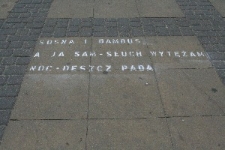 SOSNA I BAMBUS,
A JA SAM-SŁUCH WYTĘŻAM
NOC-DESZCZ PADA